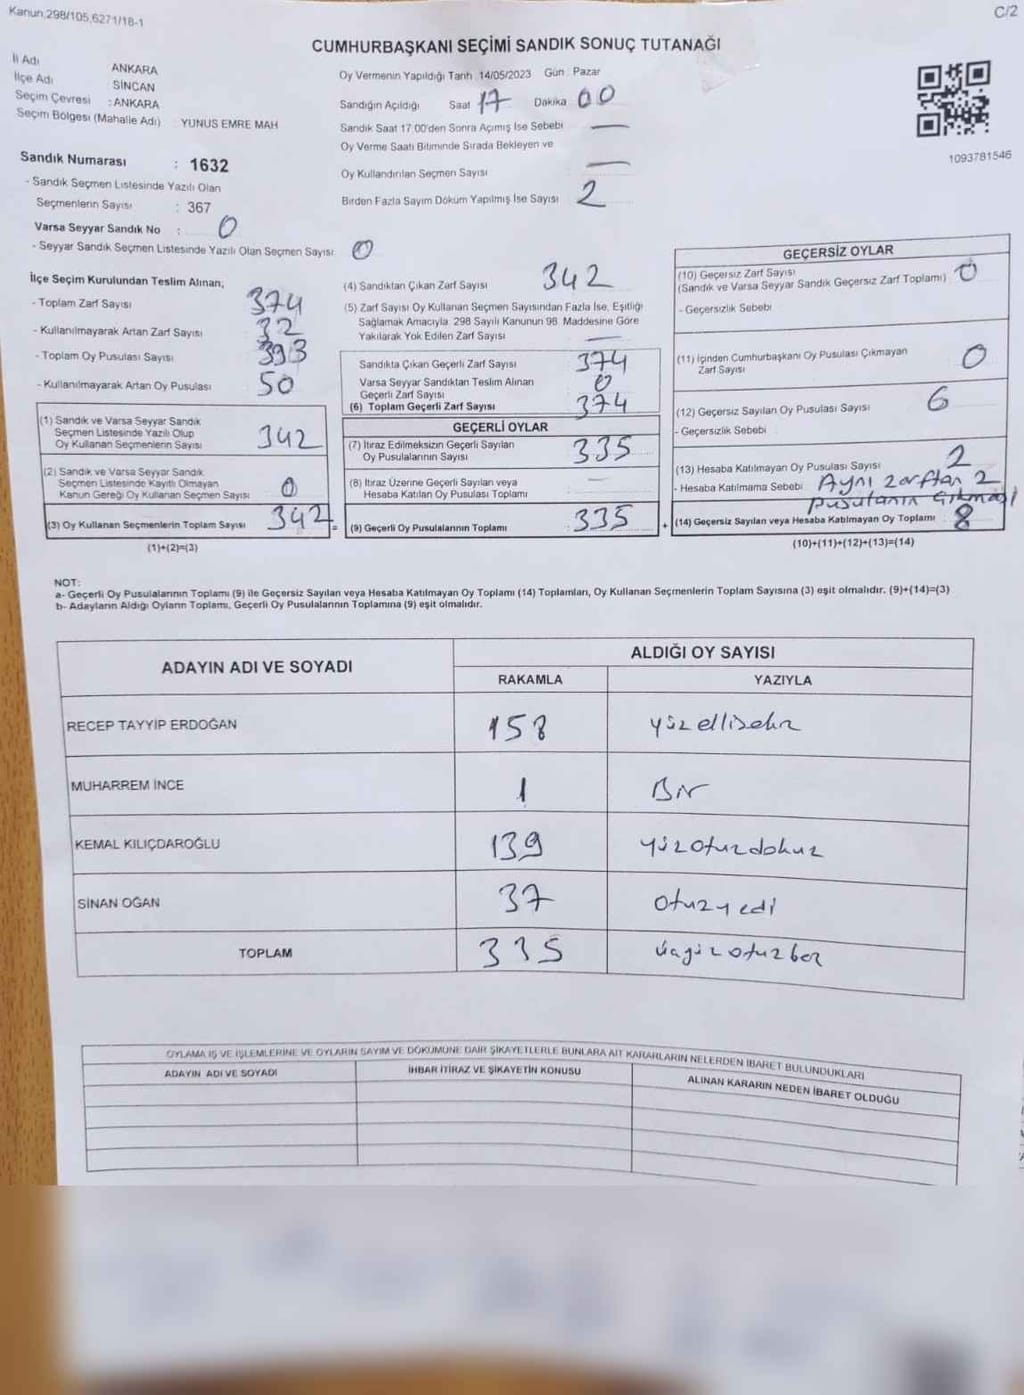 Kanun,298/105,6271/18-1
C/2
CUMHURBAŞKANI SEÇİMİ SANDIK SONUÇ TUTANAĞI
İl Adı ANKARA
İlçe Adı : SİNCAN
Seçim Çevresi : ANKARA
Seçim Bölgesi (Mahalle Adı) YUNUS EMRE MAH
Sandık Numarası : 1632
- Sandık Seçmen Listesinde Yazılı Olan
Seçmenlerin Sayısı : 367
Varsa Seyyar Sandık No : 0
- Seyyar Sandık Seçmen Listesinde Yazılı Olan Seçmen Sayısı 0
Oy Vermenin Yapıldığı Tarih 14/05/2023 Gün : Pazar
Sandığın Açıldığı Saat 17 Dakika 00
Sandık Saat 17.00'den Sonra Açımış İse Sebebi —
Oy Verme Saati Bitiminde Sırada Bekleyen ve
Oy Kullandırılan Seçmen Sayısı —
Birden Fazla Sayım Döküm Yapılmış İse Sayısı 2
1093781546
İlçe Seçim Kurulundan Teslim Alınan,
- Toplam Zarf Sayısı 374
- Kullanılmayarak Artan Zarf Sayısı 32
- Toplam Oy Pusulası Sayısı 393
- Kullanılmayarak Artan Oy Pusulası 50
(1) Sandık ve Varsa Seyyar Sandık
Seçmen Listesinde Yazılı Olup
Oy Kullanan Seçmenlerin Sayısı 342
(2) Sandık ve Varsa Seyyar Sandık
Seçmen Listesinde Kayıtlı Olmayan
Kanun Gereği Oy Kullanan Seçmen Sayısı 0
(3) Oy Kullanan Seçmenlerin Toplam Sayısı 342 =
(1)+(2)=(3)
(4) Sandıktan Çıkan Zarf Sayısı 342
(5) Zarf Sayısı Oy Kullanan Seçmen Sayısından Fazla İse, Eşitliği
Sağlamak Amacıyla 298 Sayılı Kanunun 98. Maddesine Göre
Yakılarak Yok Edilen Zarf Sayısı —
Sandıkta Çıkan Geçerli Zarf Sayısı 374
Varsa Seyyar Sandıktan Teslim Alınan
Geçerli Zarf Sayısı 0
(6) Toplam Geçerli Zarf Sayısı 374
GEÇERLİ OYLAR
(7) İtiraz Edilmeksizin Geçerli Sayılan
Oy Pusulalarının Sayısı 335
(8) İtiraz Üzerine Geçerli Sayılan veya
Hesaba Katılan Oy Pusulası Toplamı —
(9) Geçerli Oy Pusulalarının Toplamı : 335 +
GEÇERSİZ OYLAR
(10) Geçersiz Zarf Sayısı
(Sandık ve Varsa Seyyar Sandık Geçersiz Zarf Toplamı) 0
- Geçersizlik Sebebi
(11) İçinden Cumhurbaşkanı Oy Pusulası Çıkmayan
Zarf Sayısı 0
(12) Geçersiz Sayılan Oy Pusulası Sayısı 6
- Geçersizlik Sebebi
(13) Hesaba Katılmayan Oy Pusulası Sayısı 2
- Hesaba Katılmama Sebebi Aynı zarftan 2
pusulanın çıkması
(14) Geçersiz Sayılan veya Hesaba Katılmayan Oy Toplamı 8
(10)+(11)+(12)+(13)=(14)
NOT:
a- Geçerli Oy Pusulalarının Toplamı (9) ile Geçersiz Sayılan veya Hesaba Katılmayan Oy Toplamı (14) Toplamları, Oy Kullanan Seçmenlerin Toplam Sayısına (3) eşit olmalıdır. (9)+(14)=(3)
b- Adayların Aldığı Oyların Toplamı, Geçerli Oy Pusulalarının Toplamına (9) eşit olmalıdır.
ADAYIN ADI VE SOYADI ALDIĞI OY SAYISI
RAKAMLA YAZIYLA
RECEP TAYYİP ERDOĞAN 158 yüzellisekiz
MUHARREM İNCE 1 Bir
KEMAL KILIÇDAROĞLU 139 yüzotuzdokuz
SİNAN OĞAN 37 otuzyedi
TOPLAM 335 üçyüzotuzbeş
OYLAMA İŞ VE İŞLEMLERİNE VE OYLARIN SAYIM VE DÖKÜMÜNE DAİR ŞİKAYETLERLE BUNLARA AİT KARARLARIN NELERDEN İBARET BULUNDUKLARI
ADAYIN ADI VE SOYADI İHBAR İTİRAZ VE ŞİKAYETİN KONUSU ALINAN KARARIN NEDEN İBARET OLDUĞU